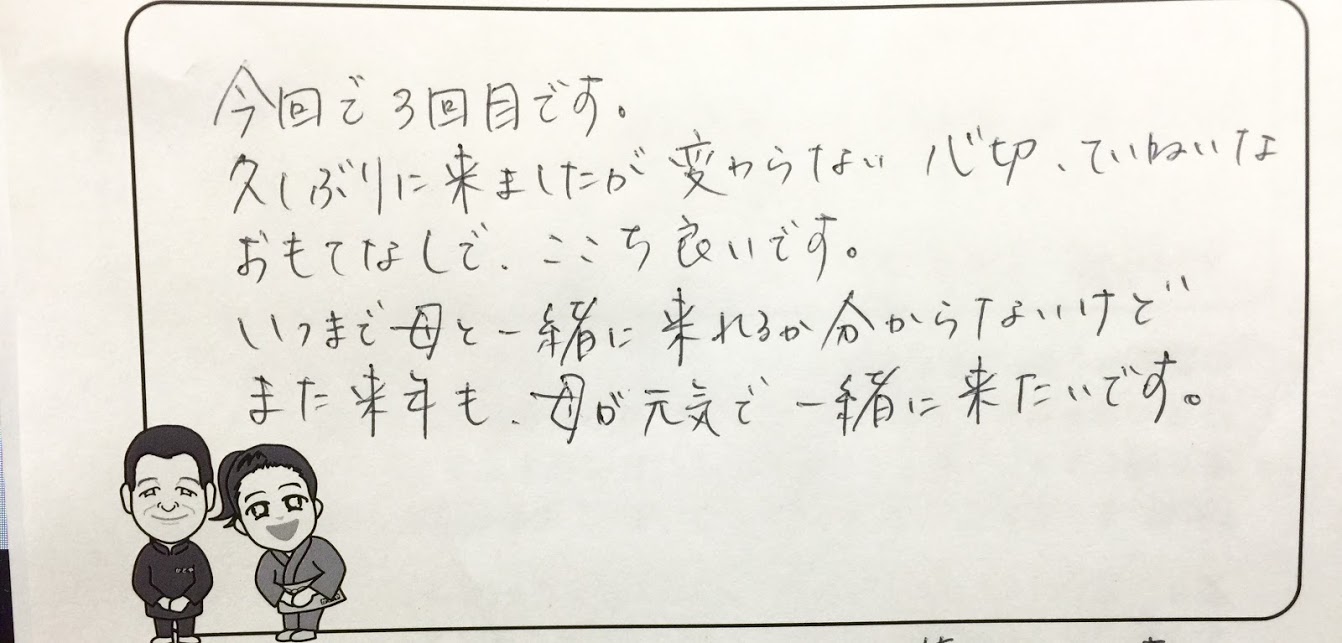 今回で3回目です。
久しぶりに来ましたが変わらない心切、ていねいな
おもてなしで、ここち良いです。
いつまで母と一緒に来れるか分からないけど
また来年も、母が元気で一緒に来たいです。